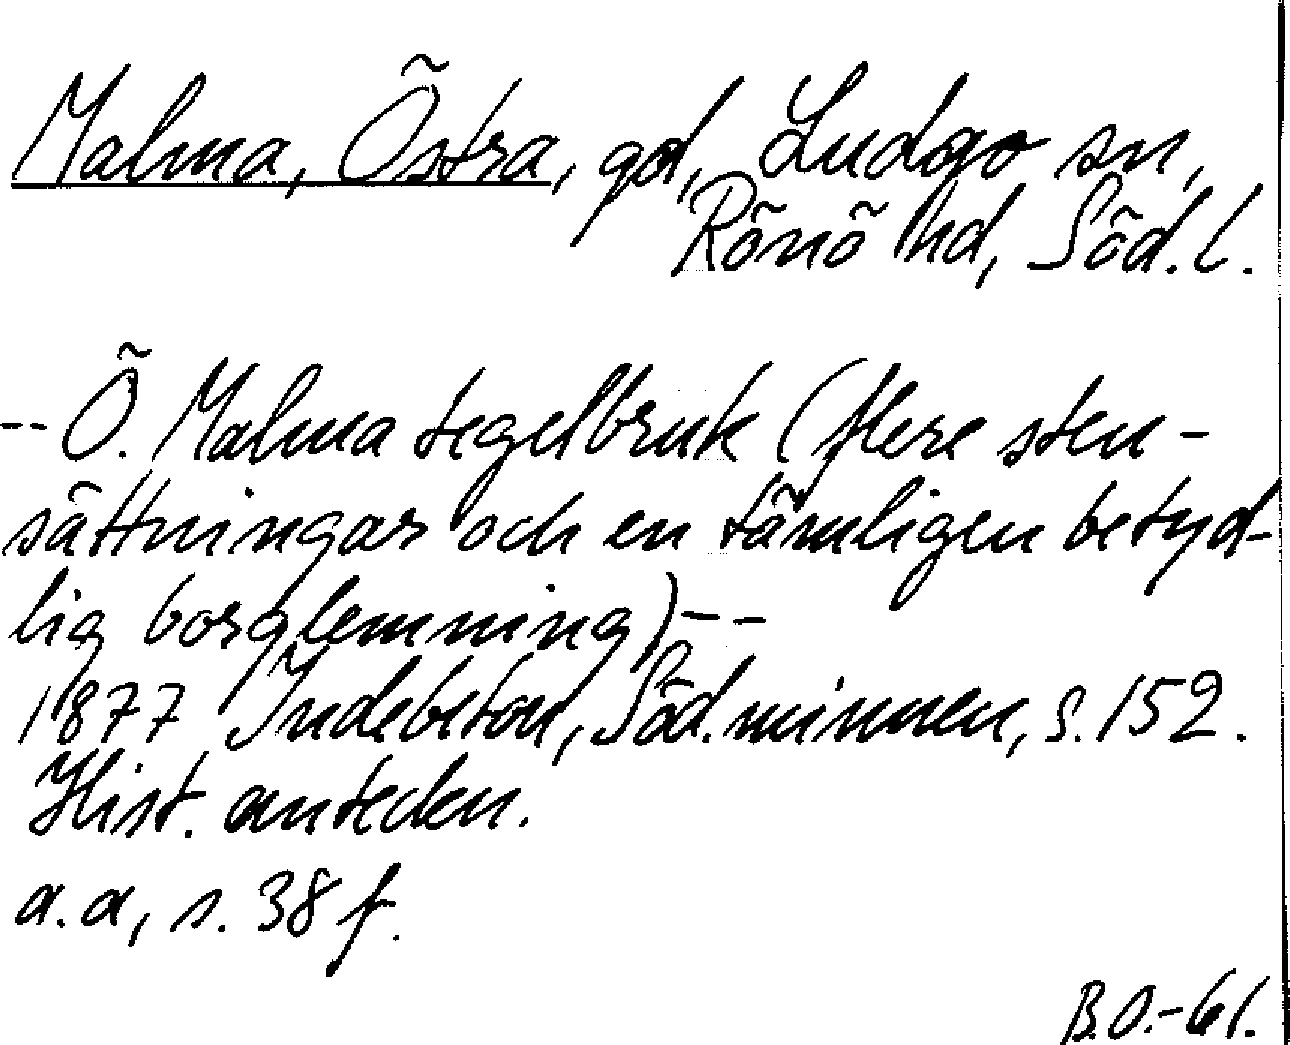 Malma, Östra, gd, Ludgo sn,
Rönö hd, Söd. l.
-- Ö. Malma tegelbruk (flere sten-
sättningar och en tämligen betyd-
lig borglemning) --
1877 Indebetou, Söd. minnen, s. 152.
Hist. anteckn.
a. a, s. 38 f.
B.O.-61.